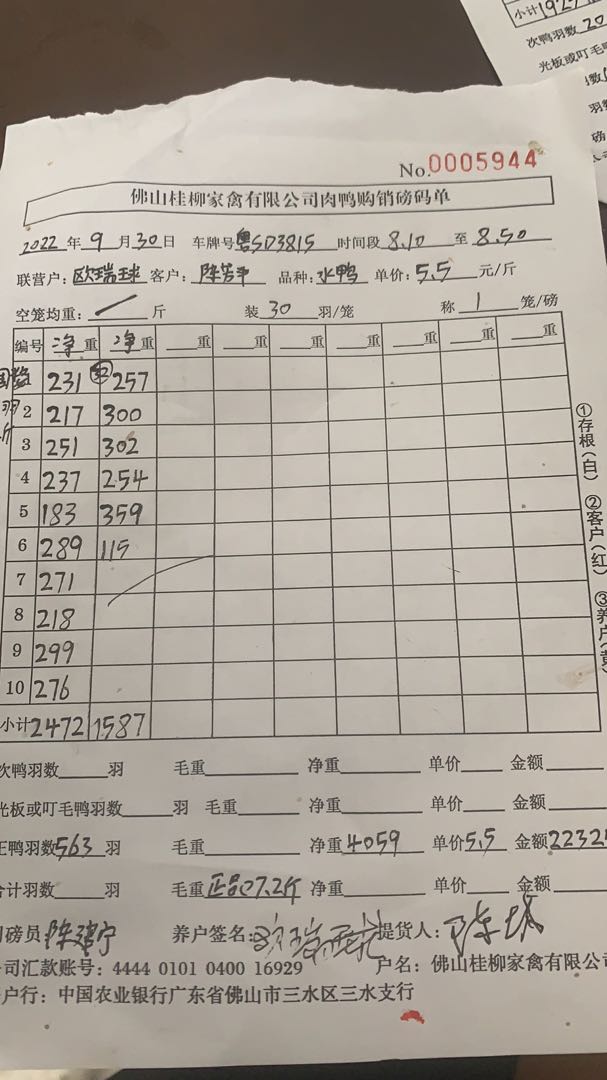 小计192
次鸭羽数20
光板或叮毛
No.0005944
佛山桂柳家禽有限公司肉鸭购销磅码单
2022年9月30日 车牌号粤SD3815 时间段8.10至8.50
联营户:欧瑞球 客户: 品种:水鸭 单价:5.5元/斤
空笼均重:/斤 装30羽/笼 称1笼/磅
编号 净重 净重 重 重 重 重 重 重
231 257
2 217 300
3 251 302
4 237 254
5 183 359
6 289 115
7 271
8 218
9 299
10 276
小计 2472 1587
①存根(白) ②客户(红) ③养户(黄)
次鸭羽数 羽 毛重 净重 单价 金额
光板或叮毛鸭羽数 羽 毛重 净重 单价 金额
正鸭羽数563羽 毛重 净重4059 单价5.5 金额2232
合计羽数 羽 毛重正品7.2斤 净重 单价 金额
司磅员 养户签名: 提货人:
公司汇款账号:4444 0101 0400 16929 户名:佛山桂柳家禽有限公司
开户行:中国农业银行广东省佛山市三水区三水支行